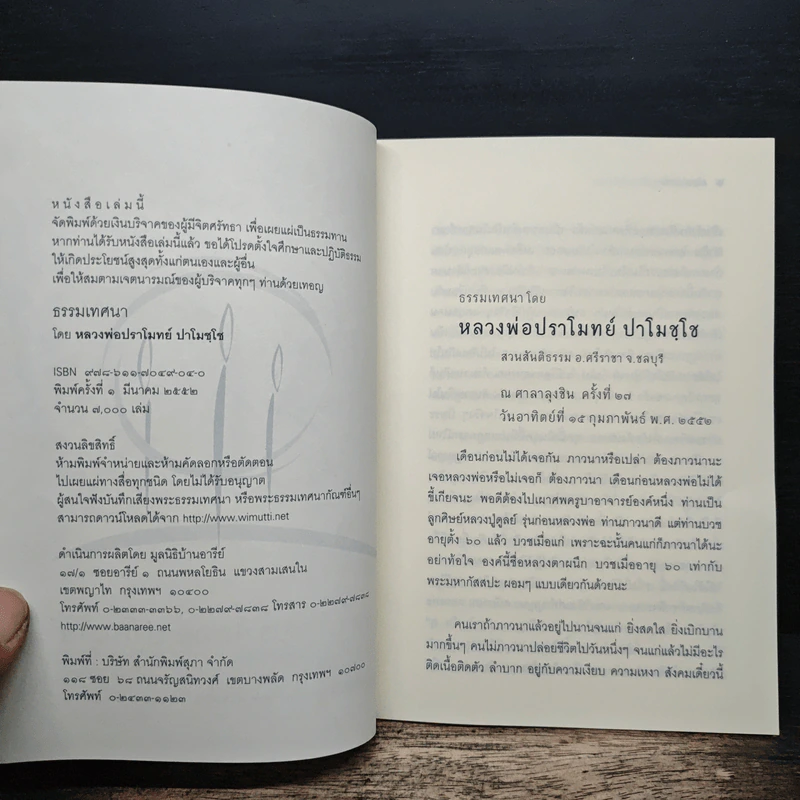 หนังสือเล่มนี้
จัดพิมพ์ด้วยเงินบริจาคของผู้มีจิตศรัทธา เพื่อเผยแผ่เป็นธรรมทาน
หากท่านได้รับหนังสือเล่มนี้แล้ว ขอได้โปรดตั้งใจศึกษาและปฏิบัติธรรม
ให้เกิดประโยชน์สูงสุดทั้งแก่ตนเองและผู้อื่น
เพื่อให้สมตามเจตนารมณ์ของผู้บริจาคทุกๆ ท่านด้วยเทอญ
ธรรมเทศนา
โดย หลวงพ่อปราโมทย์ ปาโมชฺโช
ISBN ๙๗๘-๖๑๑-๗๐๔๙-๐๔-๐
พิมพ์ครั้งที่ ๑ มีนาคม ๒๕๕๒
จำนวน ๗,๐๐๐ เล่ม
สงวนลิขสิทธิ์
ห้ามพิมพ์จำหน่ายและห้ามคัดลอกหรือตัดตอน
ไปเผยแผ่ทางสื่อทุกชนิด โดยไม่ได้รับอนุญาต
ผู้สนใจฟังบันทึกเสียงพระธรรมเทศนา หรือพระธรรมเทศนากัณฑ์อื่นๆ
สามารถดาวน์โหลดได้จาก http://www.wimutti.net
ดำเนินการผลิตโดย มูลนิธิบ้านอารีย์
๑๗/๑ ซอยอารีย์ ๑ ถนนพหลโยธิน แขวงสามเสนใน
เขตพญาไท กรุงเทพฯ ๑๐๔๐๐
โทรศัพท์ ๐-๒๓๓๓-๓๓๖๖, ๐-๒๒๗๙-๗๘๓๘ โทรสาร ๐-๒๒๗๙-๗๘๓๘
http://www.baanaree.net
พิมพ์ที่ : บริษัท สำนักพิมพ์สุภา จำกัด
๑๑๘ ซอย ๖๘ ถนนจรัญสนิทวงศ์ เขตบางพลัด กรุงเทพฯ ๑๐๗๐๐
โทรศัพท์ ๐-๒๔๓๓-๑๑๒๓
ธรรมเทศนาโดย
หลวงพ่อปราโมทย์ ปาโมชฺโช
สวนสันติธรรม อ.ศรีราชา จ.ชลบุรี
ณ ศาลาลุงชิน ครั้งที่ ๒๗
วันอาทิตย์ที่ ๑๕ กุมภาพันธ์ พ.ศ. ๒๕๕๒
เดือนก่อนไม่ได้เจอกัน ภาวนาหรือเปล่า ต้องภาวนานะ
เจอหลวงพ่อหรือไม่เจอก็ ต้องภาวนา เดือนก่อนหลวงพ่อไม่ได้
ขี้เกียจนะ พอดีต้องไปเผาศพครูบาอาจารย์องค์หนึ่ง ท่านเป็น
ลูกศิษย์หลวงปู่ดูลย์ รุ่นก่อนหลวงพ่อ ท่านภาวนาดี แต่ท่านบวช
อายุตั้ง ๖๐ แล้ว บวชเมื่อแก่ เพราะฉะนั้นคนแก่ก็ภาวนาได้นะ
อย่าท้อใจ องค์นี้ชื่อหลวงตาผนึก บวชเมื่ออายุ ๖๐ เท่ากับ
พระมหากัสสปะ ผอมๆ แบบเดียวกันด้วยนะ
คนเราถ้าภาวนาแล้วอยู่ไปนานจนแก่ ยิ่งสดใส ยิ่งเบิกบาน
มากขึ้นๆ คนไม่ภาวนาปล่อยชีวิตไปวันหนึ่งๆ จนแก่แล้วไม่มีอะไร
ติดเนื้อติดตัว ลำบาก อยู่กับความเงียบ ความเหงา สังคมเดี๋ยวนี้